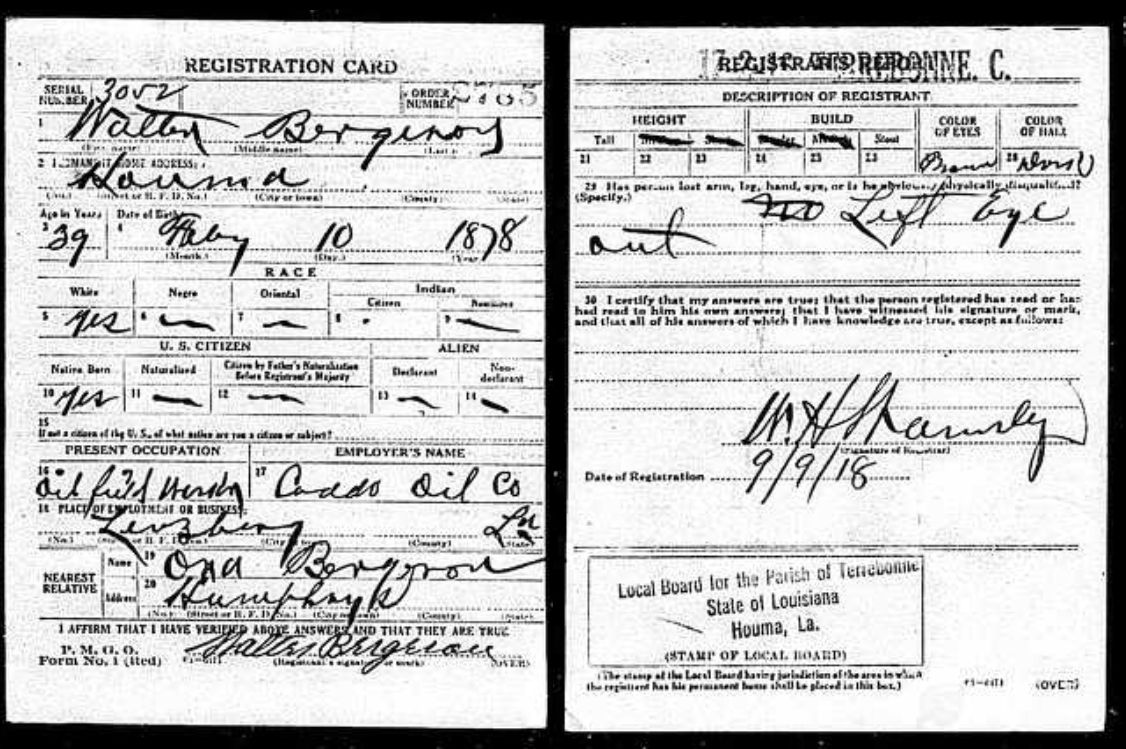 REGISTRATION CARD
SERIAL NUMBER 3052 ORDER NUMBER
1 Walter Bergeron
(First name) (Middle name) (Last name)
2 PERMANENT HOME ADDRESS:
Houma
(No.) (Street or R. F. D. No.) (City or town) (County) (State)
Age in Years Date of Birth
3 39 4 Feby 10 1878
(Month.) (Day.) (Year.)
RACE
White Negro Oriental Indian
Citizen Noncitizen
5 yes 6 — 7 — 8 - 9 —
U. S. CITIZEN ALIEN
Native Born Naturalized Citizen by Father's Naturalization Before Registrant's Majority Declarant Non-declarant
10 yes 11 — 12 — 13 — 14 —
15
If not a citizen of the U. S., of what nation are you a citizen or subject?
PRESENT OCCUPATION EMPLOYER'S NAME
16 Oil field 17 Caddo Oil Co
18 PLACE OF EMPLOYMENT OR BUSINESS:
La
(No.) (Street or R. F. D. No.) (City or town) (County) (State)
NEAREST RELATIVE Name 19 Ona Bergeron
Address 20 Humphreys
(No.) (Street or R. F. D. No.) (City or town) (County) (State)
I AFFIRM THAT I HAVE VERIFIED ABOVE ANSWERS AND THAT THEY ARE TRUE
P. M. G. O.
Form No. 1 (Red) Walter Bergeron
(Registrant's signature or mark) (OVER)
REGISTRAR'S REPORT
17-2-12 TERREBONNE. C.
DESCRIPTION OF REGISTRANT
HEIGHT BUILD COLOR OF EYES COLOR OF HAIR
Tall Medium Short Slender Medium Stout
21 22 23 24 25 26 Brown 28 Dark
29 Has person lost arm, leg, hand, eye, or is he obviously physically disqualified?
(Specify.) no Left Eye
out
30 I certify that my answers are true; that the person registered has read or has
had read to him his own answers; that I have witnessed his signature or mark,
and that all of his answers of which I have knowledge are true, except as follows:
W. H.
(Signature of Registrar)
Date of Registration 9/9/18
Local Board for the Parish of Terrebonne
State of Louisiana
Houma, La.
(STAMP OF LOCAL BOARD)
(The stamp of the Local Board having jurisdiction of the area in which
the registrant has his permanent home shall be placed in this box.)
(OVER)